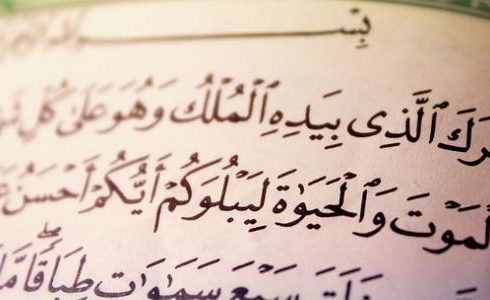 بِسْمِ
رَكَ ٱلَّذِى بِيَدِهِ ٱلْمُلْكُ وَهُوَ عَلَىٰ كُلِّ شَىْ
لْمَوْتَ وَٱلْحَيَوٰةَ لِيَبْلُوَكُمْ أَيُّكُمْ أَحْسَنُ عَ
خَلَقَ سَبْعَ سَمَٰوَٰتٍ طِبَاقًا مَّا